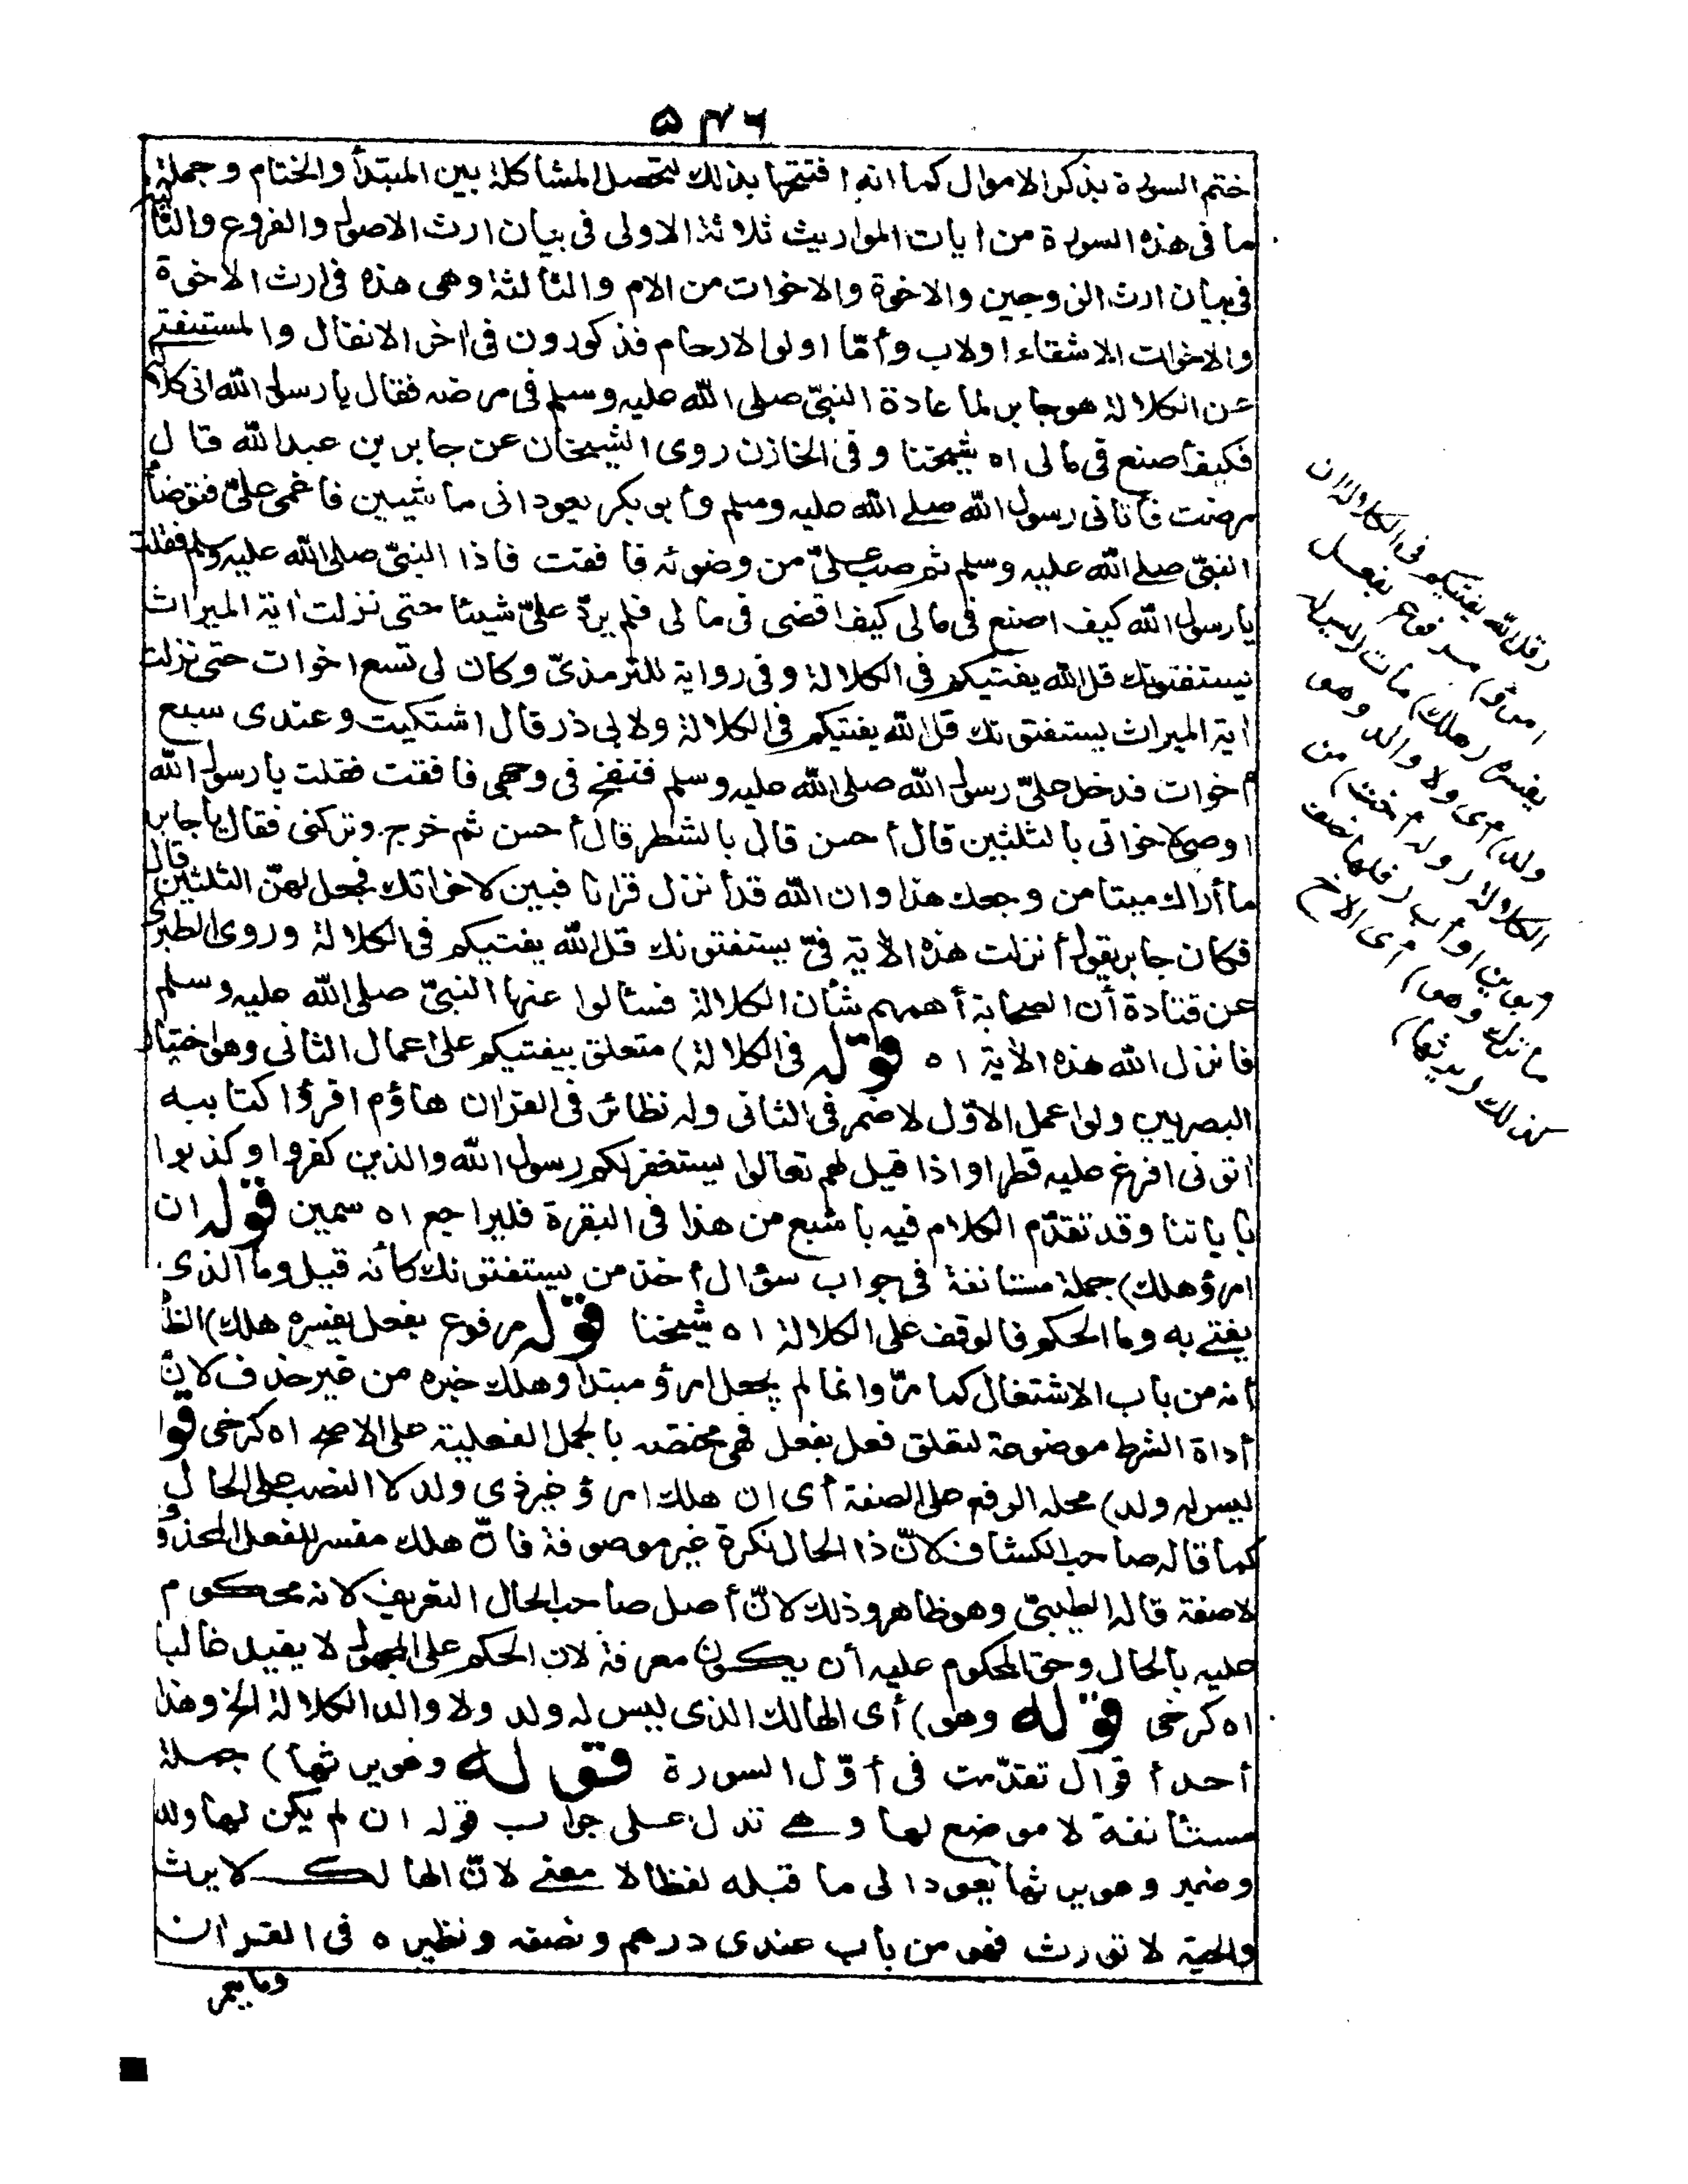 ۵۴۶
ختم السورة بذكر الاموال كما انه افتتحها بذلك لتحصل المشاكلة بين المبتدأ والختام وجملة
ما فى هذه السورة من ايات المواريث ثلاثة الاولى فى بيان ارث الاصول والفروع والثانية
فى بيان ارث الزوجين والاخوة والاخوات من الام والثالثة وهى هذه فى ارث الاخوة
والاخوات الاشقاء اولاب وأمّا اولوا الارحام فذكورون فى اخر الانفال والمستفتى
عن الكلالة هو جابر لما عادة النبىّ صلى الله عليه وسلم فى مرضه فقال يا رسول الله انى كلالة
فكيف أصنع فى مالى اه شيخنا وفى الخازن روى الشيخان عن جابر بن عبد الله قال
مرضت فأتانى رسول الله صلى الله عليه وسلم وأبو بكر يعودانى ماشيين فأغمى علىّ فتوضأ
النبىّ صلى الله عليه وسلم ثم صب علىّ من وضوئه فافقت فاذا النبىّ صلى الله عليه وسلم فقلت
يا رسول الله كيف اصنع فى مالى كيف اقضى فى مالى فلم يردّ علىّ شيئا حتى نزلت اية الميراث
يستفتونك قل الله يفتيكم فى الكلالة وفى رواية للترمذىّ وكان لى تسع اخوات حتى نزلت
اية الميراث يستفتونك قل الله يفتيكم فى الكلالة ولابى ذر قال اشتكيت وعندى سبع
أخوات فدخل علىّ رسول الله صلى الله عليه وسلم فنفخ فى وجهى فافقت فقلت يا رسول الله
اوصى لاخواتى بالثلثين قال أحسن قال بالشطر قال أحسن ثم خرج وتركنى فقال يا جابر
ما أراك ميتا من وجعك هذا وان الله قد أنزل قرانا فبين لاخواتك فجعل لهنّ الثلثين قال
فكان جابر يقول أنزلت هذه الأية فىّ يستفتونك قل الله يفتيكم فى الكلالة وروى الطبرى
عن قتادة أن الصحابة أهمهم شأن الكلالة فسألوا عنها النبىّ صلى الله عليه وسلم
فانزل الله هذه الأية اه قوله فى الكلالة) متعلق بيفتيكم على اعمال الثانى وهو اختيار
البصريين ولو اعمل الاوّل لاضمر فى الثانى وله نظائر فى القران هاؤم اقرؤا كتابيه
اتونى افرغ عليه قطرا واذا قيل لهم تعالوا يستغفر لكم رسول الله والذين كفروا وكذبوا
باياتنا وقد تقدّم الكلام فيه باشبع من هذا فى البقرة فليراجع اه سمين قوله ان
امرؤ هلك) جملة مستانفة فى جواب سؤال أخذ من يستفتونك كأنه قيل وما الذى
يفتى به وما الحكم فالوقف على الكلالة اه شيخنا قوله مرفوع بفعل يفسره هلك)
أنه من باب الاشتغال كما مرّ وانما لم يجعل امرؤ مبتدأ وهلك خبره من غير حذف لانّ
أداة الشرط موضوعة لتعلق فعل بفعل فهى مختصه بالجمل الفعلية على الاصح اه كرخى قوله
ليس له ولد) محله الرفع على الصفة أى ان هلك امرؤ غير ذى ولد لا النصب على الحال
كما قاله صاحب الكشاف لانّ ذا الحال نكرة غير موصوفة فانّ هلك مفسر للفعل المحذوف
لا صفة قاله الطيبىّ وهو ظاهر وذلك لانّ أصل صاحب الحال التعريف لانه محكوم
عليه بالحال وحق المحكوم عليه أن يكون معرفة لان الحكم على المجهول لا يفيد غالبا
اه كرخى قوله وهو) أى الهالك الذى ليس له ولد ولا والد الكلالة الخ وهذا
أحد أقوال تقدّمت فى أوّل السورة قوله وهو يرثها) جملة
مستأنفة لا موضع لها وهى تدل على جواب قوله ان لم يكن لها ولد
وضمير وهو يرثها يعود الى ما قبله لفظا لا معنى لانّ الهالك لا يرث
والحية لا تورث فهو من باب عندى درهم ونصفه ونظيره فى القران
وما يعمر
(قل الله يفتيكم فى الكلالة ان
امرؤ) مرفوع بفعل
يفسره (هلك) مات (ليس له
ولد) أى ولا والد وهو
الكلالة (وله أخت) من
أبوين أو أب (فلها نصف
ما ترك وهو) أى الاخ
كذلك (يرثها)